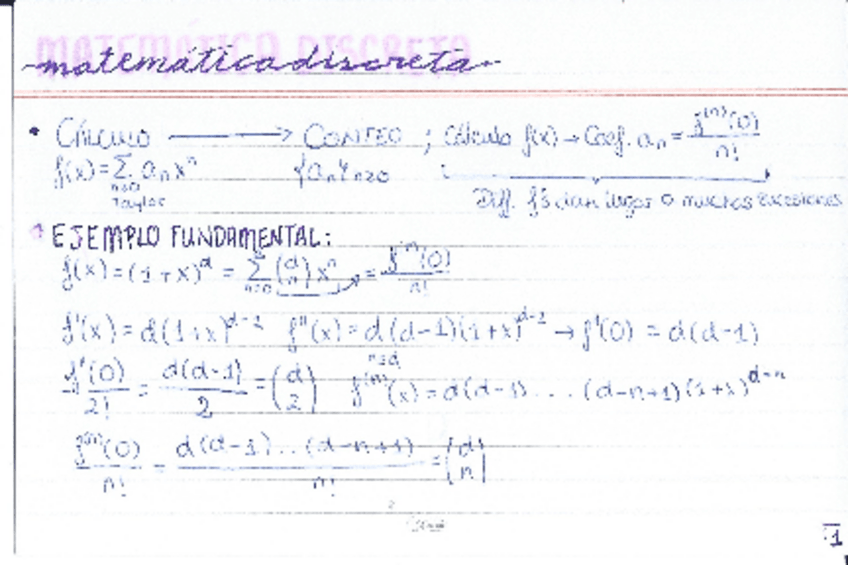 MATEMÁTICA DISCRETA
matemática discreta
• CÁLCULO ⟶ CONTEO ; Cálculo f(x) → Coef. aₙ = f⁽ⁿ⁾(0)/n!
f(x) = Σ aₙxⁿ {aₙ}ₙ≥₀
n≥0
Taylor Diff. f's dan lugar a muchas sucesiones
EJEMPLO FUNDAMENTAL:
f(x) = (1+x)^d = Σₙ≥₀ (d n) xⁿ = f⁽ⁿ⁾(0)/n!
f'(x) = d(1+x)^(d-1) f''(x) = d(d-1)(1+x)^(d-2) → f'(0) = d(d-1)
f''(0)/2! = d(d-1)/2 = (d 2) n≤d f⁽ⁿ⁾(x) = d(d-1)...(d-n+1)(1+x)^(d-n)
f⁽ⁿ⁾(0)/n! = d(d-1)...(d-n+1)/n! = (d n)
1